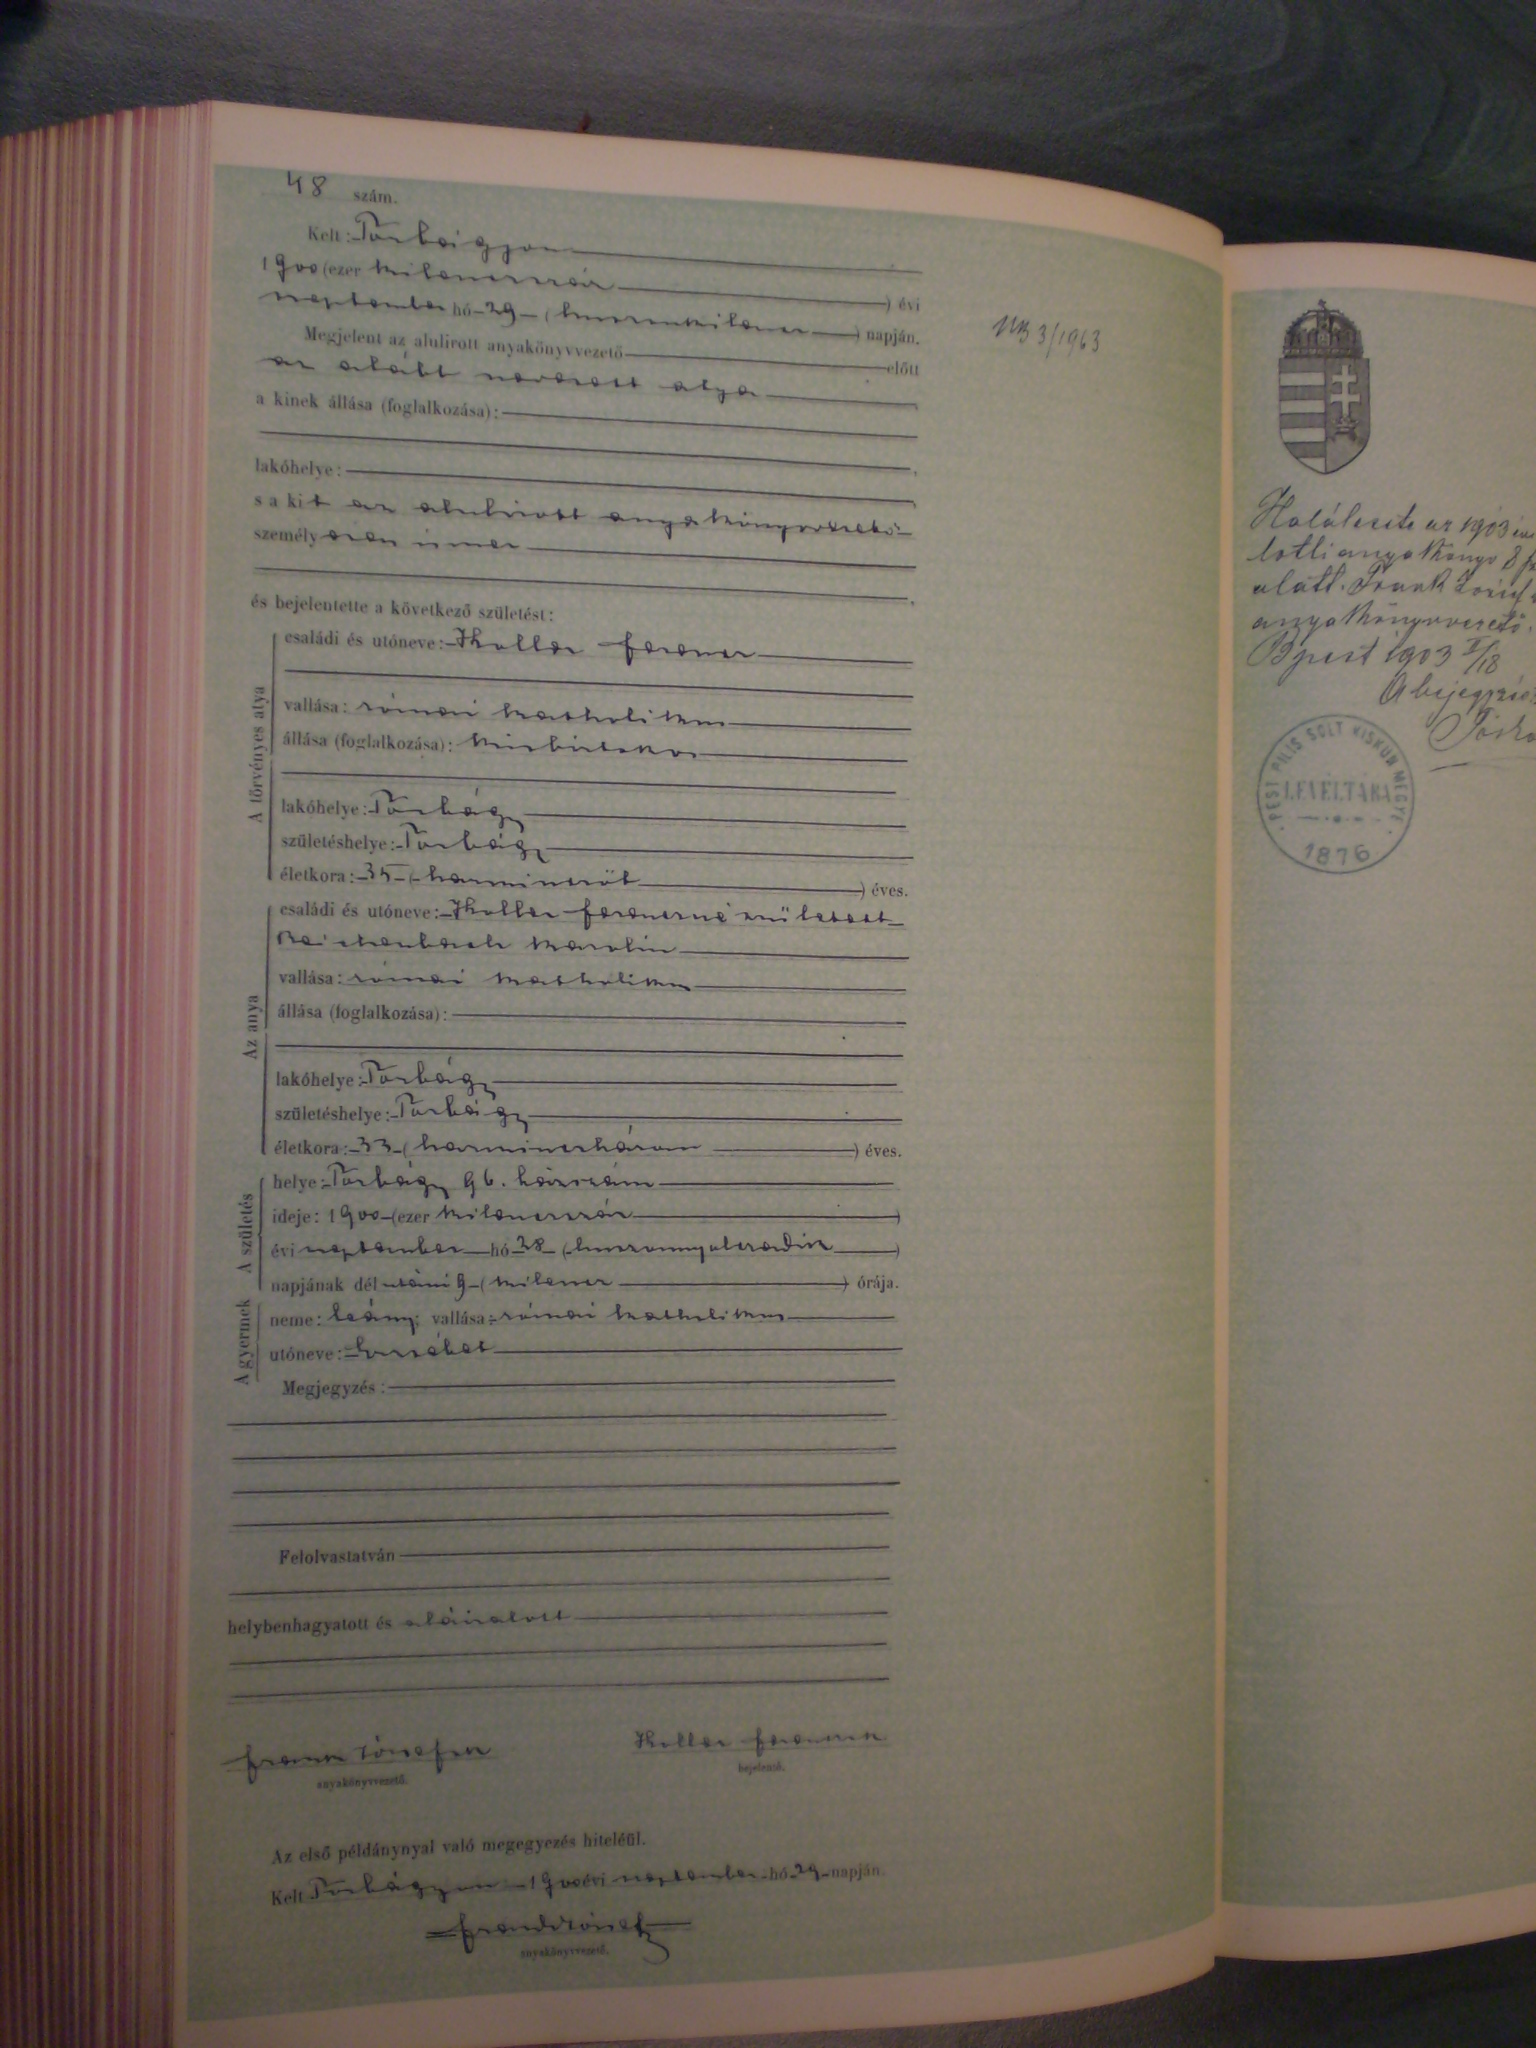 48 szám.
Kelt: Torbágyon
1900 (ezer kilencszáz ) évi
szeptember hó 29 (huszonkilenc ) napján.
Megjelent az alulirott anyakönyvvezető előtt
az alább nevezett atya
a kinek állása (foglalkozása):
lakóhelye:
s a kit az alulirott anyakönyvvezető
személyesen ismer
és bejelentette a következő születést:
A törvényes atya
családi és utóneve: Koller Ferencz
vallása: római katholikus
állása (foglalkozása): kisbirtokos
lakóhelye: Torbágy
születéshelye: Torbágy
életkora: 35 (harminczöt ) éves.
Az anya
családi és utóneve: Koller Ferenczné született
Reichenbach Karolin
vallása: római katholikus
állása (foglalkozása):
lakóhelye: Torbágy
születéshelye: Torbágy
életkora: 33 (harminczhárom ) éves.
A születés
helye: Torbágy 96. házszám
ideje: 1900 (ezer kilencszáz )
évi szeptember hó 28 (huszonnyolczadik )
napjának dél utáni 9 (kilencz ) órája.
A gyermek
neme: leány; vallása: római katholikus
utóneve: Erzsébet
Megjegyzés:
Felolvastatván
helybenhagyatott és aláiratott
Koller Ferencz
anyakönyvvezető. bejelentő.
Az első példánynyal való megegyezés hiteléül.
Kelt Torbágyon 1900 évi szeptember hó 29 napján.
Frank József
anyakönyvvezető.
3/1963
az 1903
anyakönyv 8
alatt. Frank József
anyakönyvvezető.
Bpest 1903 I/18
A bejegyzés
PEST PILIS SOLT KISKUN MEGYE
LEVÉLTÁRA
1876